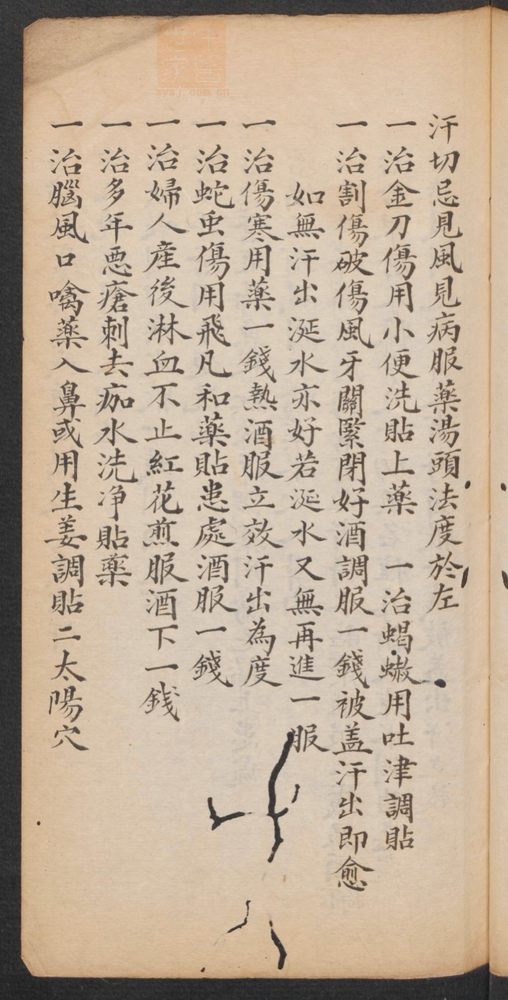 汗切忌見風見病服藥湯頭法度於左
一治金刀傷用小便洗貼上藥　一治蝎螫用吐津調貼
一治割傷破傷風牙關緊閉好酒調服一錢被盖汗出即愈
如無汗出涎水亦好若涎水又無再進一服
一治傷寒用藥一錢熱酒服立效汗出為度
一治蛇虫傷用飛凡和藥貼患處酒服一錢
一治婦人産後淋血不止紅花煎服酒下一錢
一治多年悪瘡刺去痂水洗净貼藥
一治腦風口噙藥入鼻或用生姜調貼二太陽穴